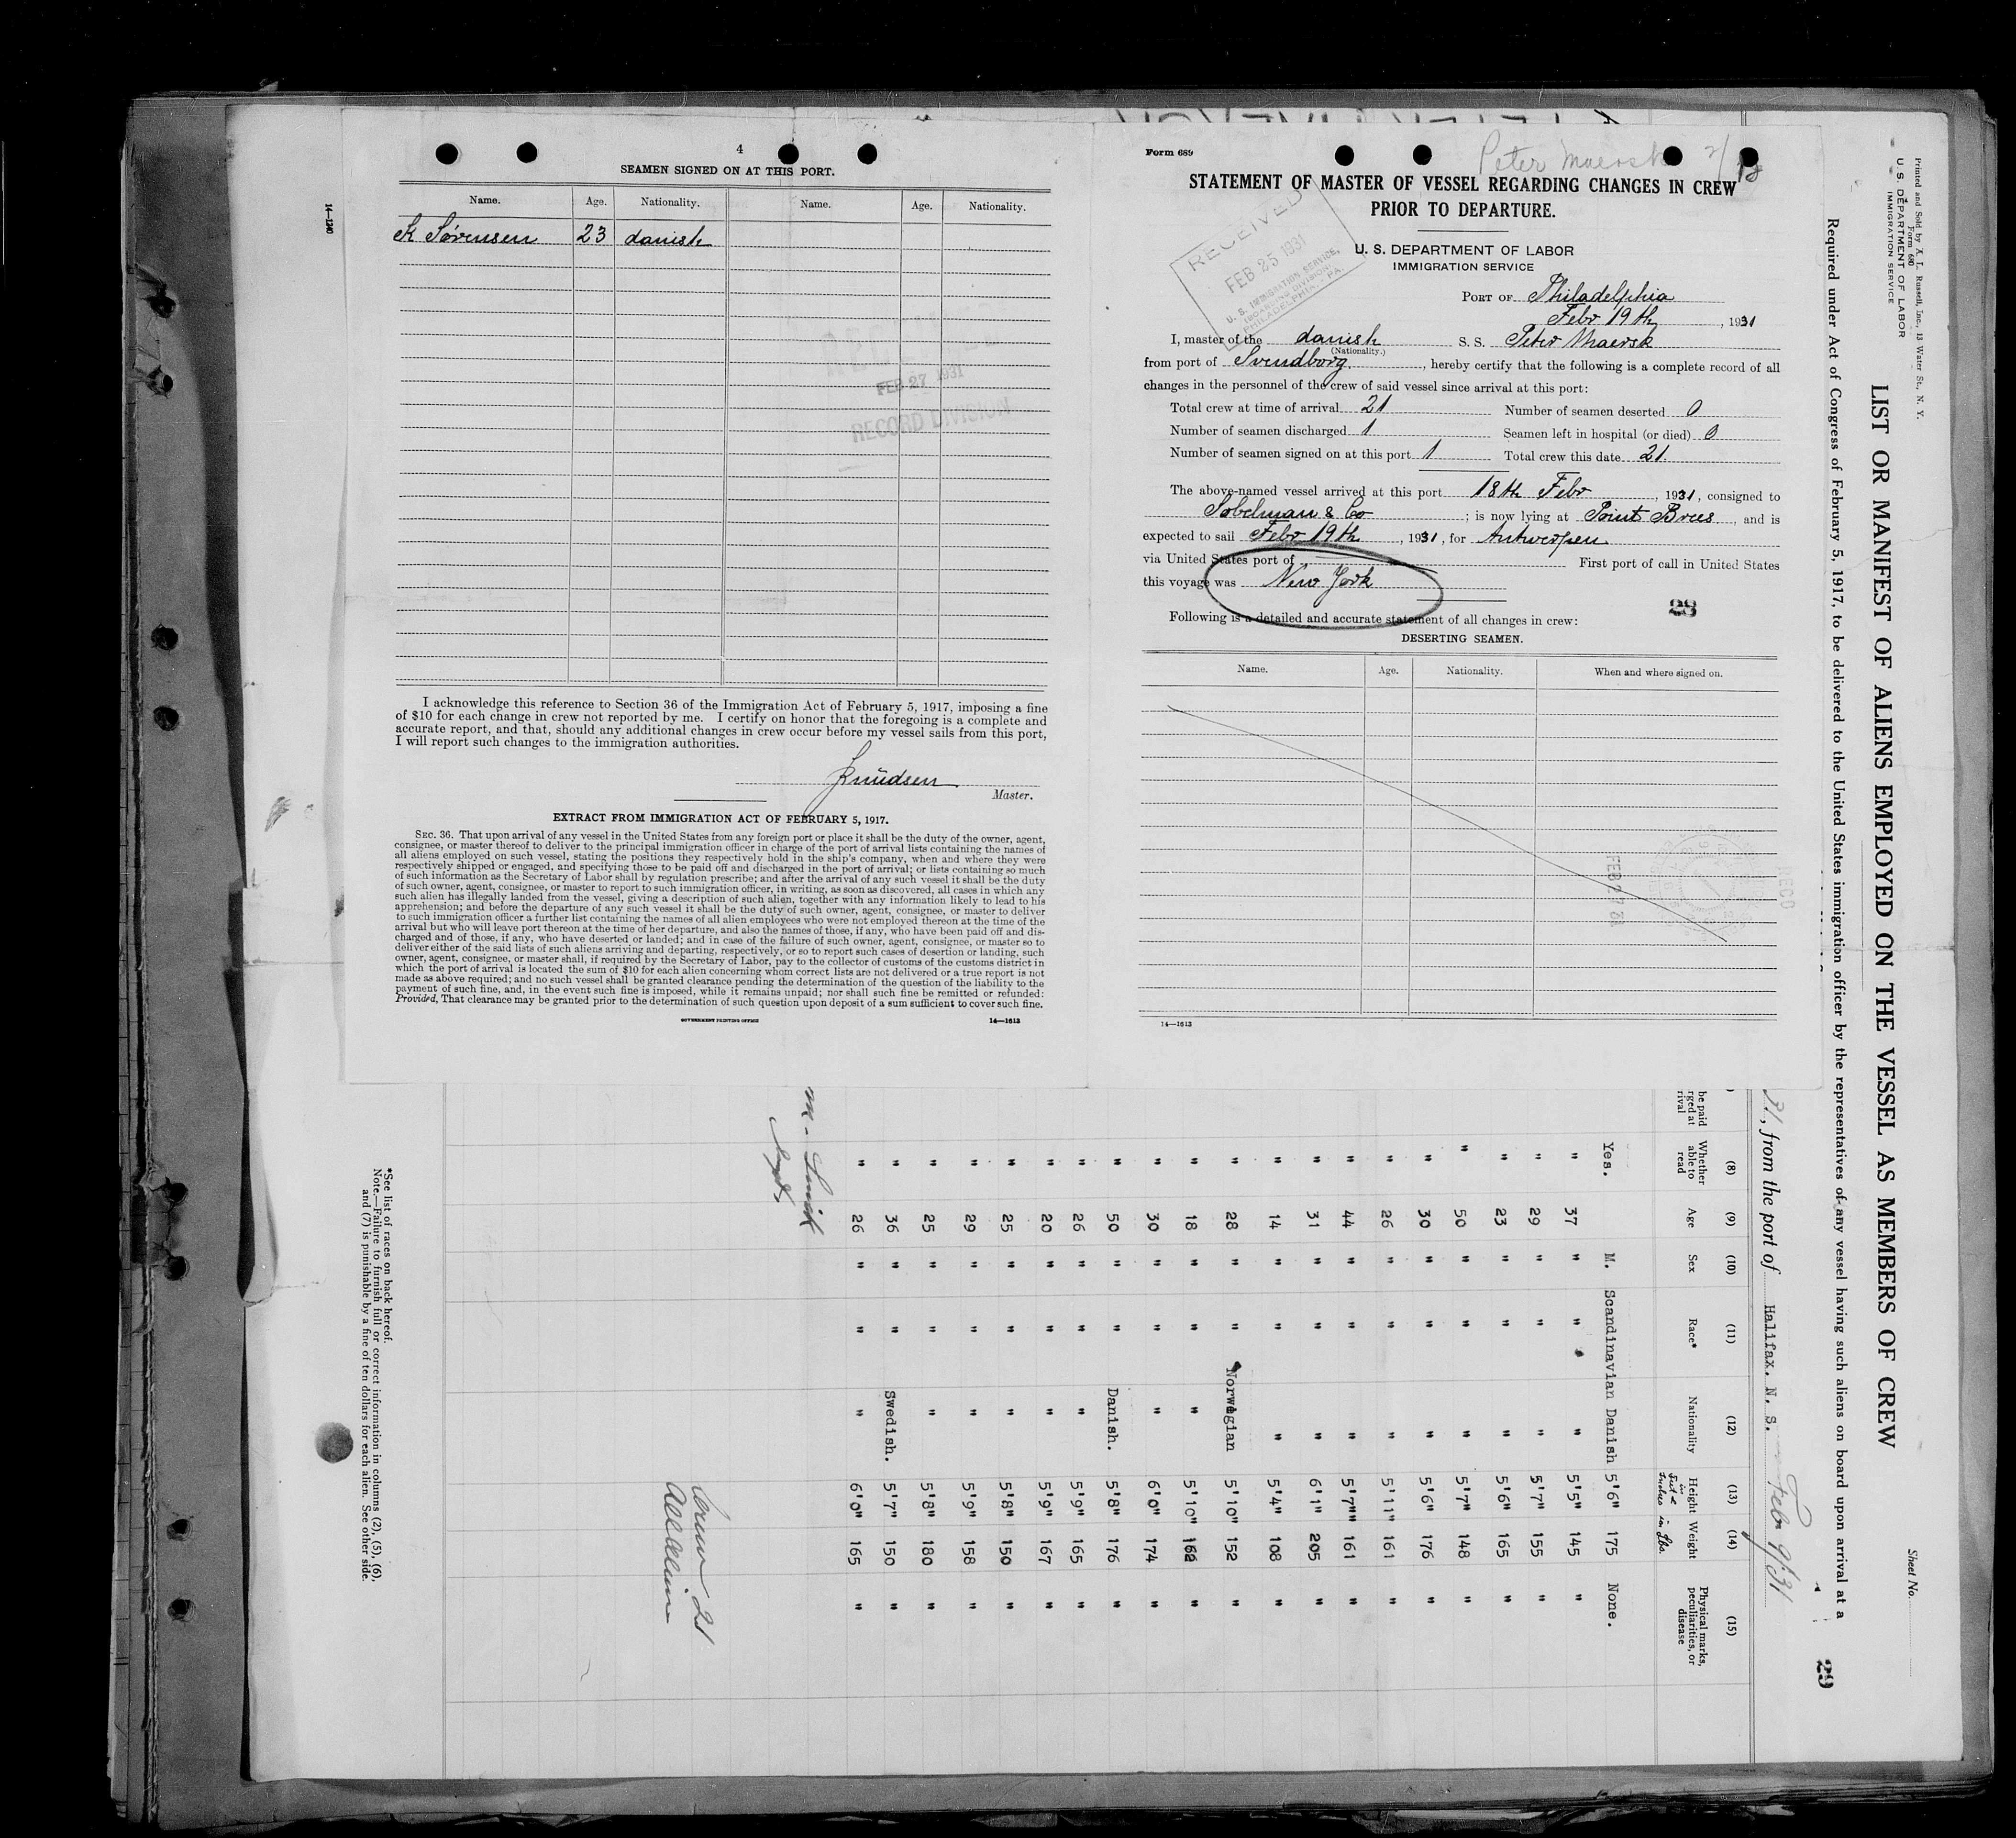 4
SEAMEN SIGNED ON AT THIS PORT.
Name. Age. Nationality. Name. Age. Nationality.
K Sørensen 23 danish
FEB 27 1931
RECORD DIVISION
I acknowledge this reference to Section 36 of the Immigration Act of February 5, 1917, imposing a fine
of $10 for each change in crew not reported by me. I certify on honor that the foregoing is a complete and
accurate report, and that, should any additional changes in crew occur before my vessel sails from this port,
I will report such changes to the immigration authorities.
Knudsen
Master.
EXTRACT FROM IMMIGRATION ACT OF FEBRUARY 5, 1917.
SEC. 36. That upon arrival of any vessel in the United States from any foreign port or place it shall be the duty of the owner, agent,
consignee, or master thereof to deliver to the principal immigration officer in charge of the port of arrival lists containing the names of
all aliens employed on such vessel, stating the positions they respectively hold in the ship's company, when and where they were
respectively shipped or engaged, and specifying those to be paid off and discharged in the port of arrival; or lists containing so much
of such information as the Secretary of Labor shall by regulation prescribe; and after the arrival of any such vessel it shall be the duty
of such owner, agent, consignee, or master to report to such immigration officer, in writing, as soon as discovered, all cases in which any
such alien has illegally landed from the vessel, giving a description of such alien, together with any information likely to lead to his
apprehension; and before the departure of any such vessel it shall be the duty of such owner, agent, consignee, or master to deliver
to such immigration officer a further list containing the names of all alien employees who were not employed thereon at the time of the
arrival but who will leave port thereon at the time of her departure, and also the names of those, if any, who have been paid off and dis-
charged and of those, if any, who have deserted or landed; and in case of the failure of such owner, agent, consignee, or master so to
deliver either of the said lists of such aliens arriving and departing, respectively, or so to report such cases of desertion or landing, such
owner, agent, consignee, or master shall, if required by the Secretary of Labor, pay to the collector of customs of the customs district in
which the port of arrival is located the sum of $10 for each alien concerning whom correct lists are not delivered or a true report is not
made as above required; and no such vessel shall be granted clearance pending the determination of the question of the liability to the
payment of such fine, and, in the event such fine is imposed, while it remains unpaid; nor shall such fine be remitted or refunded:
Provided, That clearance may be granted prior to the determination of such question upon deposit of a sum sufficient to cover such fine.
GOVERNMENT PRINTING OFFICE 14—1613
14—1240
Form 689
Peter Maersk 2/18
STATEMENT OF MASTER OF VESSEL REGARDING CHANGES IN CREW
PRIOR TO DEPARTURE.
RECEIVED
FEB 25 1931
U. S. IMMIGRATION SERVICE,
PHILADELPHIA, PA.
U. S. DEPARTMENT OF LABOR
IMMIGRATION SERVICE
PORT OF Philadelphia
Febr 19th, 1931
I, master of the danish S. S. Peter Maersk
(Nationality.)
from port of Svendborg, hereby certify that the following is a complete record of all
changes in the personnel of the crew of said vessel since arrival at this port:
Total crew at time of arrival 21 Number of seamen deserted 0
Number of seamen discharged 1 Seamen left in hospital (or died) 0
Number of seamen signed on at this port 1 Total crew this date 21.
The above-named vessel arrived at this port 18th Febr, 1931, consigned to
Sobelman & Co; is now lying at Point Brees, and is
expected to sail Febr 19th, 1931, for Antwerpen
via United States port of First port of call in United States
this voyage was New York
28
Following is a detailed and accurate statement of all changes in crew:
DESERTING SEAMEN.
Name. Age. Nationality. When and where signed on.
FEB 27 31
14—1613
Printed and Sold by A. L. Russell, Inc., 13 Water St., N. Y.
Form 680
U. S. DEPARTMENT OF LABOR
IMMIGRATION SERVICE
Sheet No.
LIST OR MANIFEST OF ALIENS EMPLOYED ON THE VESSEL AS MEMBERS OF CREW
Required under Act of Congress of February 5, 1917, to be delivered to the United States immigration officer by the representatives of any vessel having such aliens on board upon arrival at a
29
31, from the port of Halifax. N. S. Febr 9/31
(8) (9) (10) (11) (12) (13) (14) (15)
be paid
rged at
rival
Whether able to read Age Sex Race* Nationality Height Weight Physical marks, peculiarities, or disease
Yes. M. Scandinavian Danish 5'6" 175 None.
" 37 " " " 5'5" 145 "
" 29 " " " 5'7" 155 "
" 23 " " " 5'6" 165 "
" 50 " " " 5'7" 148 "
" 30 " " " 5'6" 176 "
" 26 " " " 5'11" 161 "
" 44 " " " 5'7"" 161 "
" 31 " " " 6'1" 205 "
" 14 " " " 5'4" 108 "
" 28 " " Norwegian 5'10" 152 "
" 18 " " " 5'10" 162 "
" 30 " " " 6'0" 174 "
" 50 " " Danish. 5'8" 176 "
" 26 " " " 5'9" 165 "
" 20 " " " 5'9" 167 "
" 25 " " " 5'8" 150 "
" 29 " " " 5'9" 158 "
" 25 " " " 5'8" 180 "
" 36 " " Swedish. 5'7" 150 "
" 26 " " " 6'0" 165 "
Crew 21
All Aliens
*See list of races on back hereof.
Note.—Failure to furnish full or correct information in columns (2), (5), (6),
and (7) is punishable by a fine of ten dollars for each alien. See other side.